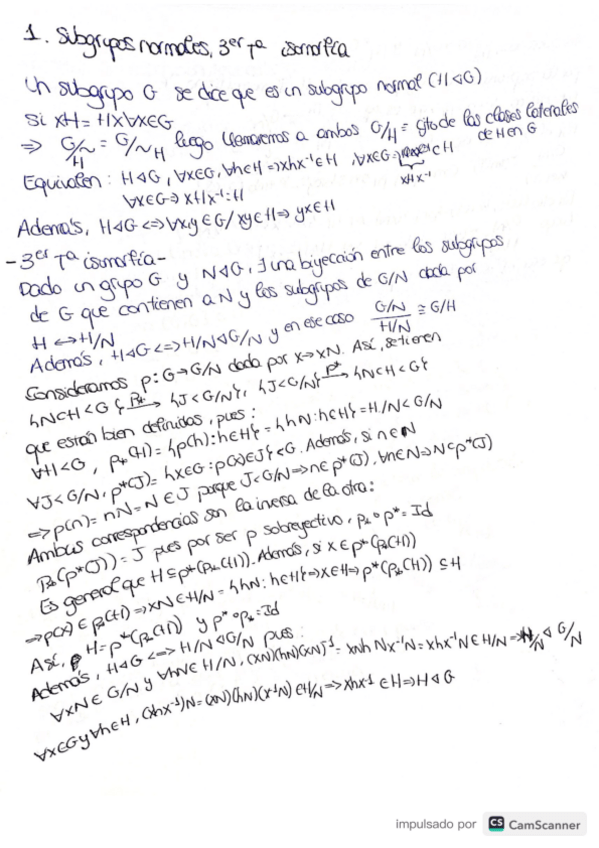 1. Subgrupos normales, 3er Tª isomorfía
Un subgrupo G se dice que es un subgrupo normal (H◁G)
Si xH=Hx∀x∈G
⇒ G/~H = G/~H luego llamaremos a ambos G/H = cjto de las clases laterales
de H en G
Equivalen: H◁G, ∀x∈G, ∀h∈H ⇒ xhx⁻¹∈H ∀x∈G ⊂H
xHx⁻¹
∀x∈G ⇒ xHx⁻¹=H
Además, H◁G <=> ∀x,y∈G/ xy∈H ⇒ yx∈H
-3er Tª isomorfía-
Dado un grupo G y N◁G, ∃ una biyección entre los subgrupos
de G que contienen a N y los subgrupos de G/N dada por
H ↔ H/N
Además, H◁G <=> H/N◁G/N y en ese caso (G/N)/(H/N) ≅ G/H
Consideramos p: G→G/N dada por x→xN. Así, se tienen
{N⊂H<G} —p*→ {J<G/N}, {J<G/N} —p*→ {N⊂H<G}
que están bien definidos, pues:
∀H<G, p*(H)={p(h):h∈H}={hN:h∈H}=H/N<G/N
∀J<G/N, p*(J)={x∈G:p(x)∈J}<G. Además, si n∈N
⇒p(n)=nN=N∈J porque J<G/N ⇒n∈p*(J), ∀n∈N⇒N⊂p*(J)
Ambas correspondencias son la inversa de la otra:
p*(p*(J))=J pues por ser p sobreyectivo, p*∘p*=Id
Es general que H⊆p*(p*(H)). Además, si x∈p*(p*(H))
⇒p(x)∈p*(H)⇒xN∈H/N={hN:h∈H}⇒x∈H⇒p*(p*(H))⊆H
Así, H=p*(p*(H)) y p*∘p*=Id
Además, H◁G <=> H/N◁G/N pues:
∀xN∈G/N y ∀hN∈H/N, (xN)(hN)(xN)⁻¹=xNhNx⁻¹N=xhx⁻¹N∈H/N⇒H/N◁G/N
∀x∈G y ∀h∈H, (xhx⁻¹)N=(xN)(hN)(x⁻¹N)∈H/N⇒xhx⁻¹∈H⇒H◁G
impulsado por CS CamScanner